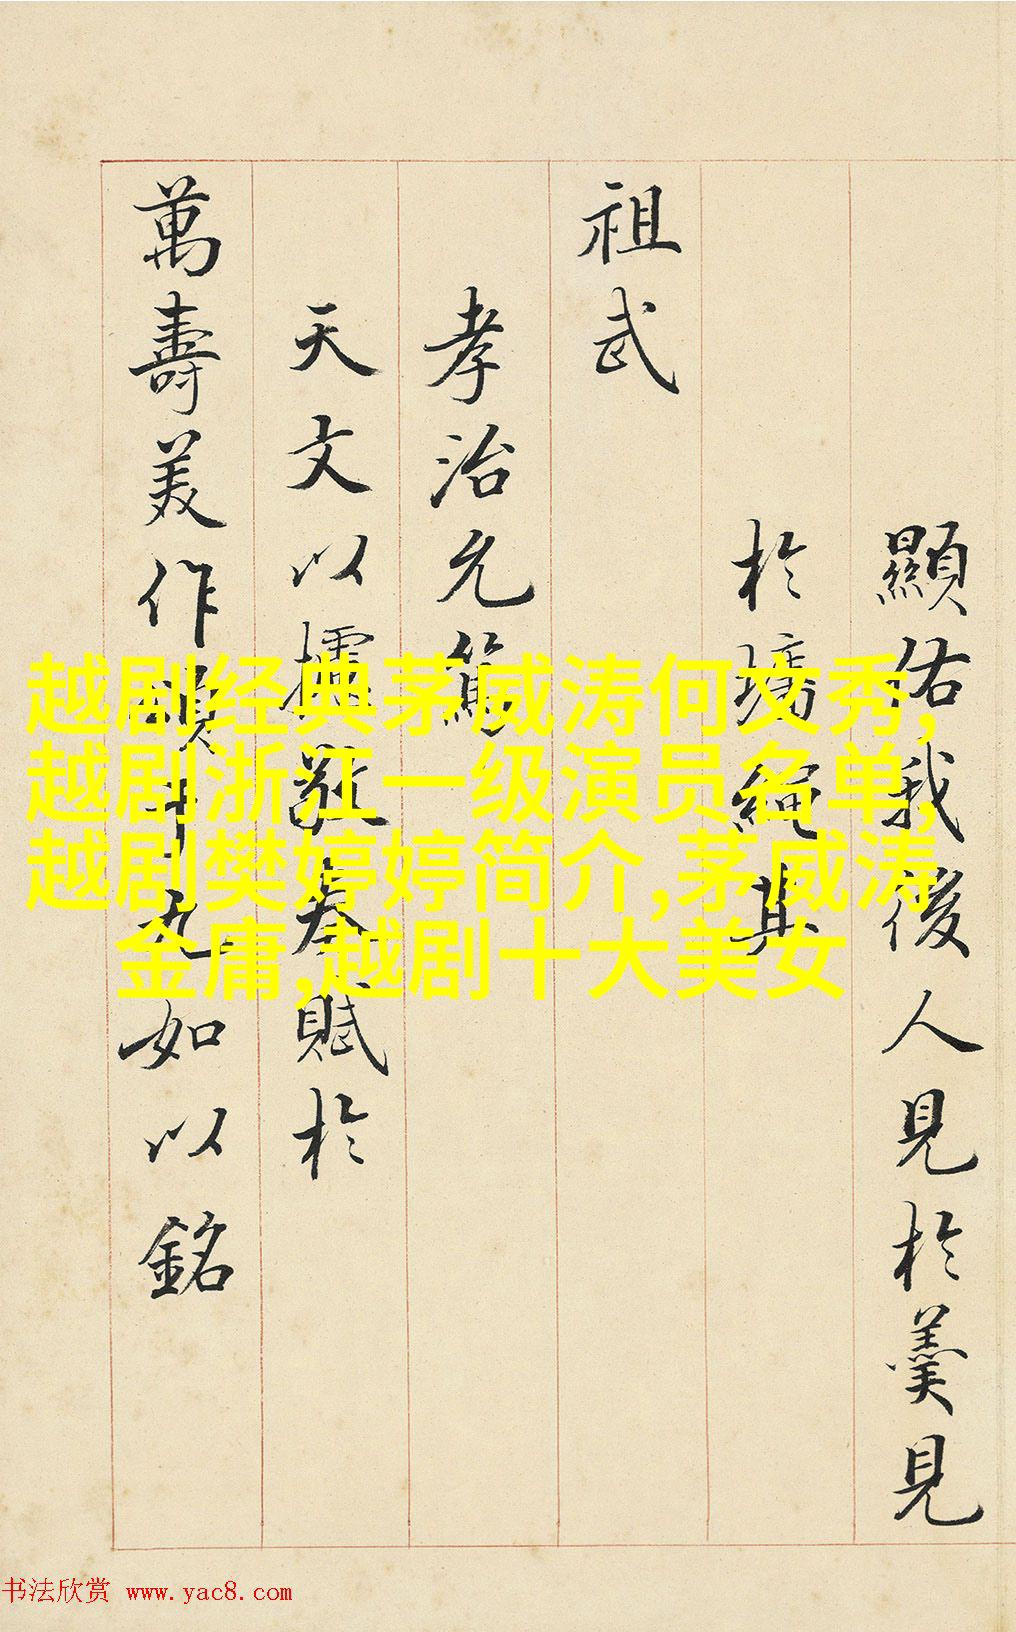 顯佑我後人見於羹見
於墻繩其
祖武
孝治允篤
天文以攄敬奏賦於
萬壽美作頌十九如以銘
越剧经典茅威涛何文秀,
越剧浙江一级演员名单,
越剧樊婷婷简介,茅威涛
金庸,越剧十大美女
书法欣赏 www.yac8.com